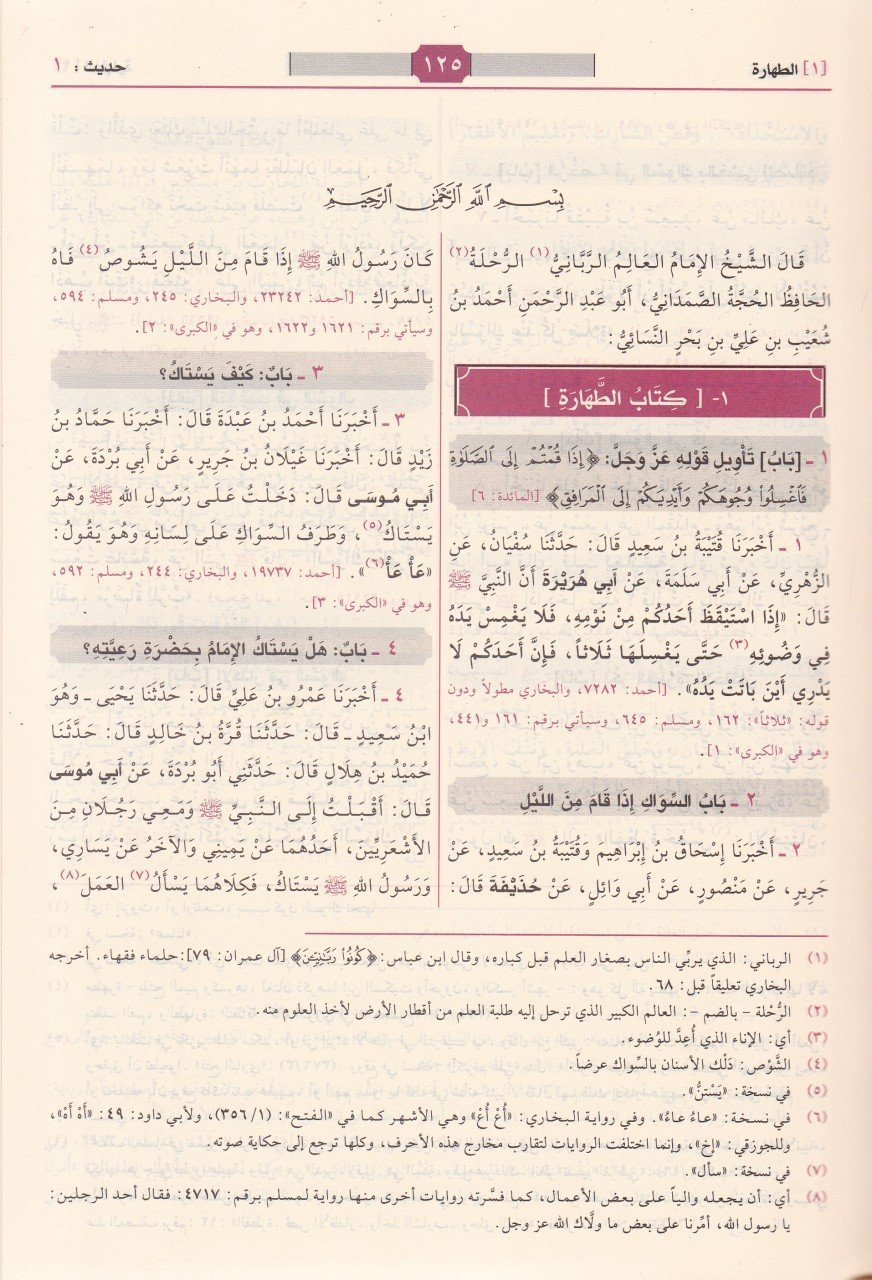 [١] الطهارة
١٢٥
حديث : ١
بِسْمِ اللهِ الرَّحْمَنِ الرَّحِيمِ
قَالَ الشَّيْخُ الإِمَامُ العَالِمُ الرَّبَّانِيُّ (١) الرُّحْلَةُ (٢)
الحَافِظُ الحُجَّةُ الصَّمَدَانِيُّ، أَبُو عَبْدِ الرَّحْمَنِ أَحْمَدُ بنُ
شُعَيْبِ بنِ عَلِيِّ بنِ بَحْرٍ النَّسَائِيُّ:
١- [ كِتَابُ الطَّهَارَةِ ]
١ ـ [بَابُ] تَأْوِيلِ قَوْلِهِ عَزَّ وَجَلَّ: ﴿إِذَا قُمْتُمْ إِلَى الصَّلَوٰةِ
فَاغْسِلُوا وُجُوهَكُمْ وَأَيْدِيَكُمْ إِلَى الْمَرَافِقِ﴾ [المائدة: ٦]
١ ـ أَخْبَرَنَا قُتَيْبَةُ بنُ سَعِيدٍ قَالَ: حَدَّثَنَا سُفْيَانُ، عَنِ
الزُّهْرِيِّ، عَنْ أَبِي سَلَمَةَ، عَنْ أَبِي هُرَيْرَةَ أَنَّ النَّبِيَّ ﷺ
قَالَ: «إِذَا اسْتَيْقَظَ أَحَدُكُمْ مِنْ نَوْمِهِ، فَلَا يَغْمِسْ يَدَهُ
فِي وَضُوئِهِ (٣) حَتَّى يَغْسِلَهَا ثَلَاثاً، فَإِنَّ أَحَدَكُمْ لَا
يَدْرِي أَيْنَ بَاتَتْ يَدُهُ». [أحمد: ٧٢٨٢، والبخاري مطولاً ودون
قوله: «ثلاثاً»: ١٦٢، ومسلم: ٦٤٥، وسيأتي برقم: ١٦١ و٤٤١،
وهو في «الكبرى»: ١].
٢ ـ بَابُ السِّوَاكِ إِذَا قَامَ مِنَ اللَّيْلِ
٢ ـ أَخْبَرَنَا إِسْحَاقُ بنُ إِبْرَاهِيمَ وَقُتَيْبَةُ بنُ سَعِيدٍ، عَنْ
جَرِيرٍ، عَنْ مَنْصُورٍ، عَنْ أَبِي وَائِلٍ، عَنْ حُذَيْفَةَ قَالَ:
كَانَ رَسُولُ اللهِ ﷺ إِذَا قَامَ مِنَ اللَّيْلِ يَشُوصُ (٤) فَاهُ
بِالسِّوَاكِ. [أحمد: ٢٣٢٤٢، والبخاري: ٢٤٥، ومسلم: ٥٩٤،
وسيأتي برقم: ١٦٢١ و١٦٢٢، وهو في «الكبرى»: ٢].
٣ ـ بَابٌ: كَيْفَ يَسْتَاكُ؟
٣ ـ أَخْبَرَنَا أَحْمَدُ بنُ عَبْدَةَ قَالَ: أَخْبَرَنَا حَمَّادُ بنُ
زَيْدٍ قَالَ: أَخْبَرَنَا غَيْلَانُ بنُ جَرِيرٍ، عَنْ أَبِي بُرْدَةَ، عَنْ
أَبِي مُوسَى قَالَ: دَخَلْتُ عَلَى رَسُولِ اللهِ ﷺ وَهُوَ
يَسْتَاكُ (٥)، وَطَرَفُ السِّوَاكِ عَلَى لِسَانِهِ وَهُوَ يَقُولُ:
«عَأْ عَأْ (٦)». [أحمد: ١٩٧٣٧، والبخاري: ٢٤٤، ومسلم: ٥٩٢،
وهو في «الكبرى»: ٣].
٤ ـ بَابٌ: هَلْ يَسْتَاكُ الإِمَامُ بِحَضْرَةِ رَعِيَّتِهِ؟
٤ ـ أَخْبَرَنَا عَمْرُو بنُ عَلِيٍّ قَالَ: حَدَّثَنَا يَحْيَى ـ وَهُوَ
ابْنُ سَعِيدٍ ـ قَالَ: حَدَّثَنَا قُرَّةُ بنُ خَالِدٍ قَالَ: حَدَّثَنَا
حُمَيْدُ بنُ هِلَالٍ قَالَ: حَدَّثَنِي أَبُو بُرْدَةَ، عَنْ أَبِي مُوسَى
قَالَ: أَقْبَلْتُ إِلَى النَّبِيِّ ﷺ وَمَعِي رَجُلَانِ مِنَ
الأَشْعَرِيِّينَ، أَحَدُهُمَا عَنْ يَمِينِي وَالآخَرُ عَنْ يَسَارِي،
وَرَسُولُ اللهِ ﷺ يَسْتَاكُ، فَكِلَاهُمَا يَسْأَلُ (٧) العَمَلَ (٨)،
(١) الرباني: الذي يربِّي الناس بصغار العلم قبل كباره، وقال ابن عباس: ﴿كُونُوا رَبَّانِيِّينَ﴾ [آل عمران: ٧٩]: حلماء فقهاء. أخرجه
البخاري تعليقاً قبل: ٦٨.
(٢) الرُّحْلة – بالضم –: العالم الكبير الذي ترحل إليه طلبة العلم من أقطار الأرض لأخذ العلوم منه.
(٣) أي: الإناء الذي أُعِدَّ للوُضوء.
(٤) الشَّوْص: دَلْك الأسنان بالسِّواك عرضاً.
(٥) في نسخة: «يَسْتَنُّ».
(٦) في نسخة: «عاءُ عاءُ». وفي رواية البخاري: «أُعْ أُعْ» وهي الأشهر كما في «الفتح»: (١/ ٣٥٦)، ولأبي داود: ٤٩: «أَهْ أَهْ»،
وللجوزقي: «إخ»، وإنما اختلفت الروايات لتقارب مخارج هذه الأحرف، وكلها ترجع إلى حكاية صوته.
(٧) في نسخة: «سأل».
(٨) أي: أن يجعله والياً على بعض الأعمال، كما فسَّرته روايات أخرى منها رواية لمسلم برقم: ٤٧١٧: فقال أحد الرجلين:
يا رسول الله، أمِّرنا على بعض ما ولَّاك الله عز وجل.